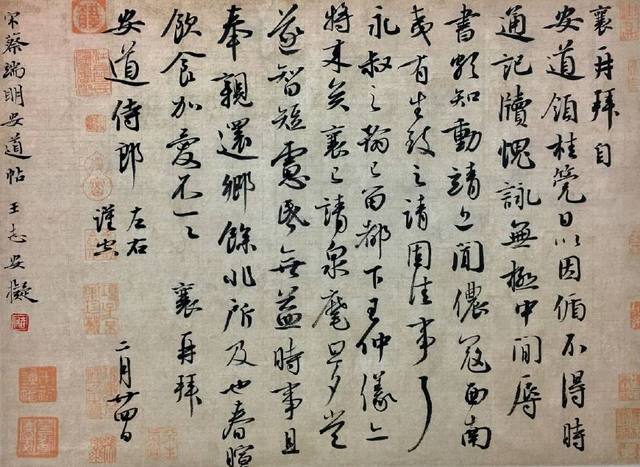 襄再拜自
安道領桂筦日以因循不得時
通記牘愧詠無極中間辱
書頗知動靖近聞儂寇西南
夷有生致之請固佳事耳
永叔之翰已留都下王仲儀亦
將來矣襄已請泉麾旦夕當
遂智短慮昏無益時事且
奉親還鄉餘非所及也春暄
飲食加愛不一一 襄再拜
安道侍郎
左右
謹空
二月廿四日
宋蔡端明安道帖 王志安擬